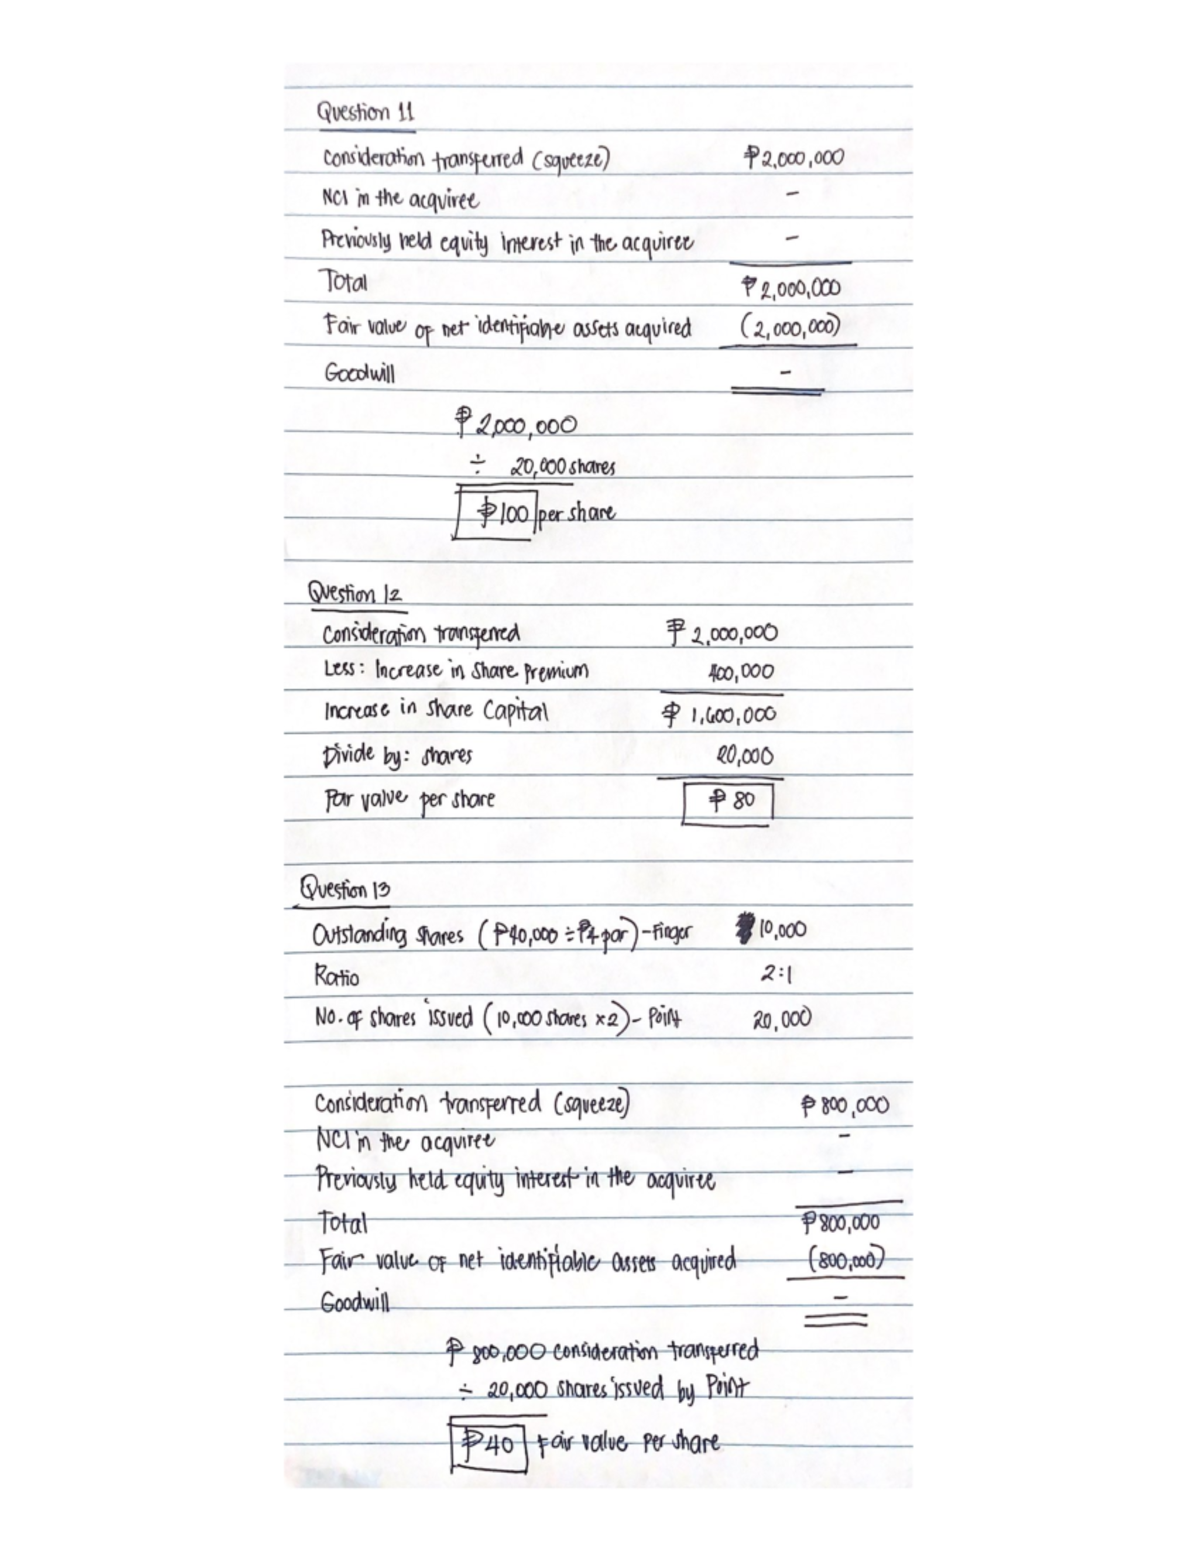 Question 11
Consideration transferred (squeeze) ₱2,000,000
NCI in the acquiree -
Previously held equity interest in the acquiree -
Total ₱2,000,000
Fair value of net identifiable assets acquired (2,000,000)
Goodwill -
₱2,000,000
÷ 20,000 shares
₱100 per share
Question 12
Consideration transferred ₱2,000,000
Less: Increase in share premium 400,000
Increase in share Capital ₱1,600,000
Divide by: shares 20,000
Par value per share ₱80
Question 13
Outstanding shares (₱40,000 ÷ ₱4 par) - Finger 10,000
Ratio 2:1
No. of shares issued (10,000 shares x2) - Point 20,000
Consideration transferred (squeeze) ₱800,000
NCI in the acquiree -
Previously held equity interest in the acquiree -
Total ₱800,000
Fair value of net identifiable assets acquired (800,000)
Goodwill -
₱800,000 consideration transferred
÷ 20,000 shares issued by Point
₱40 Fair value per share